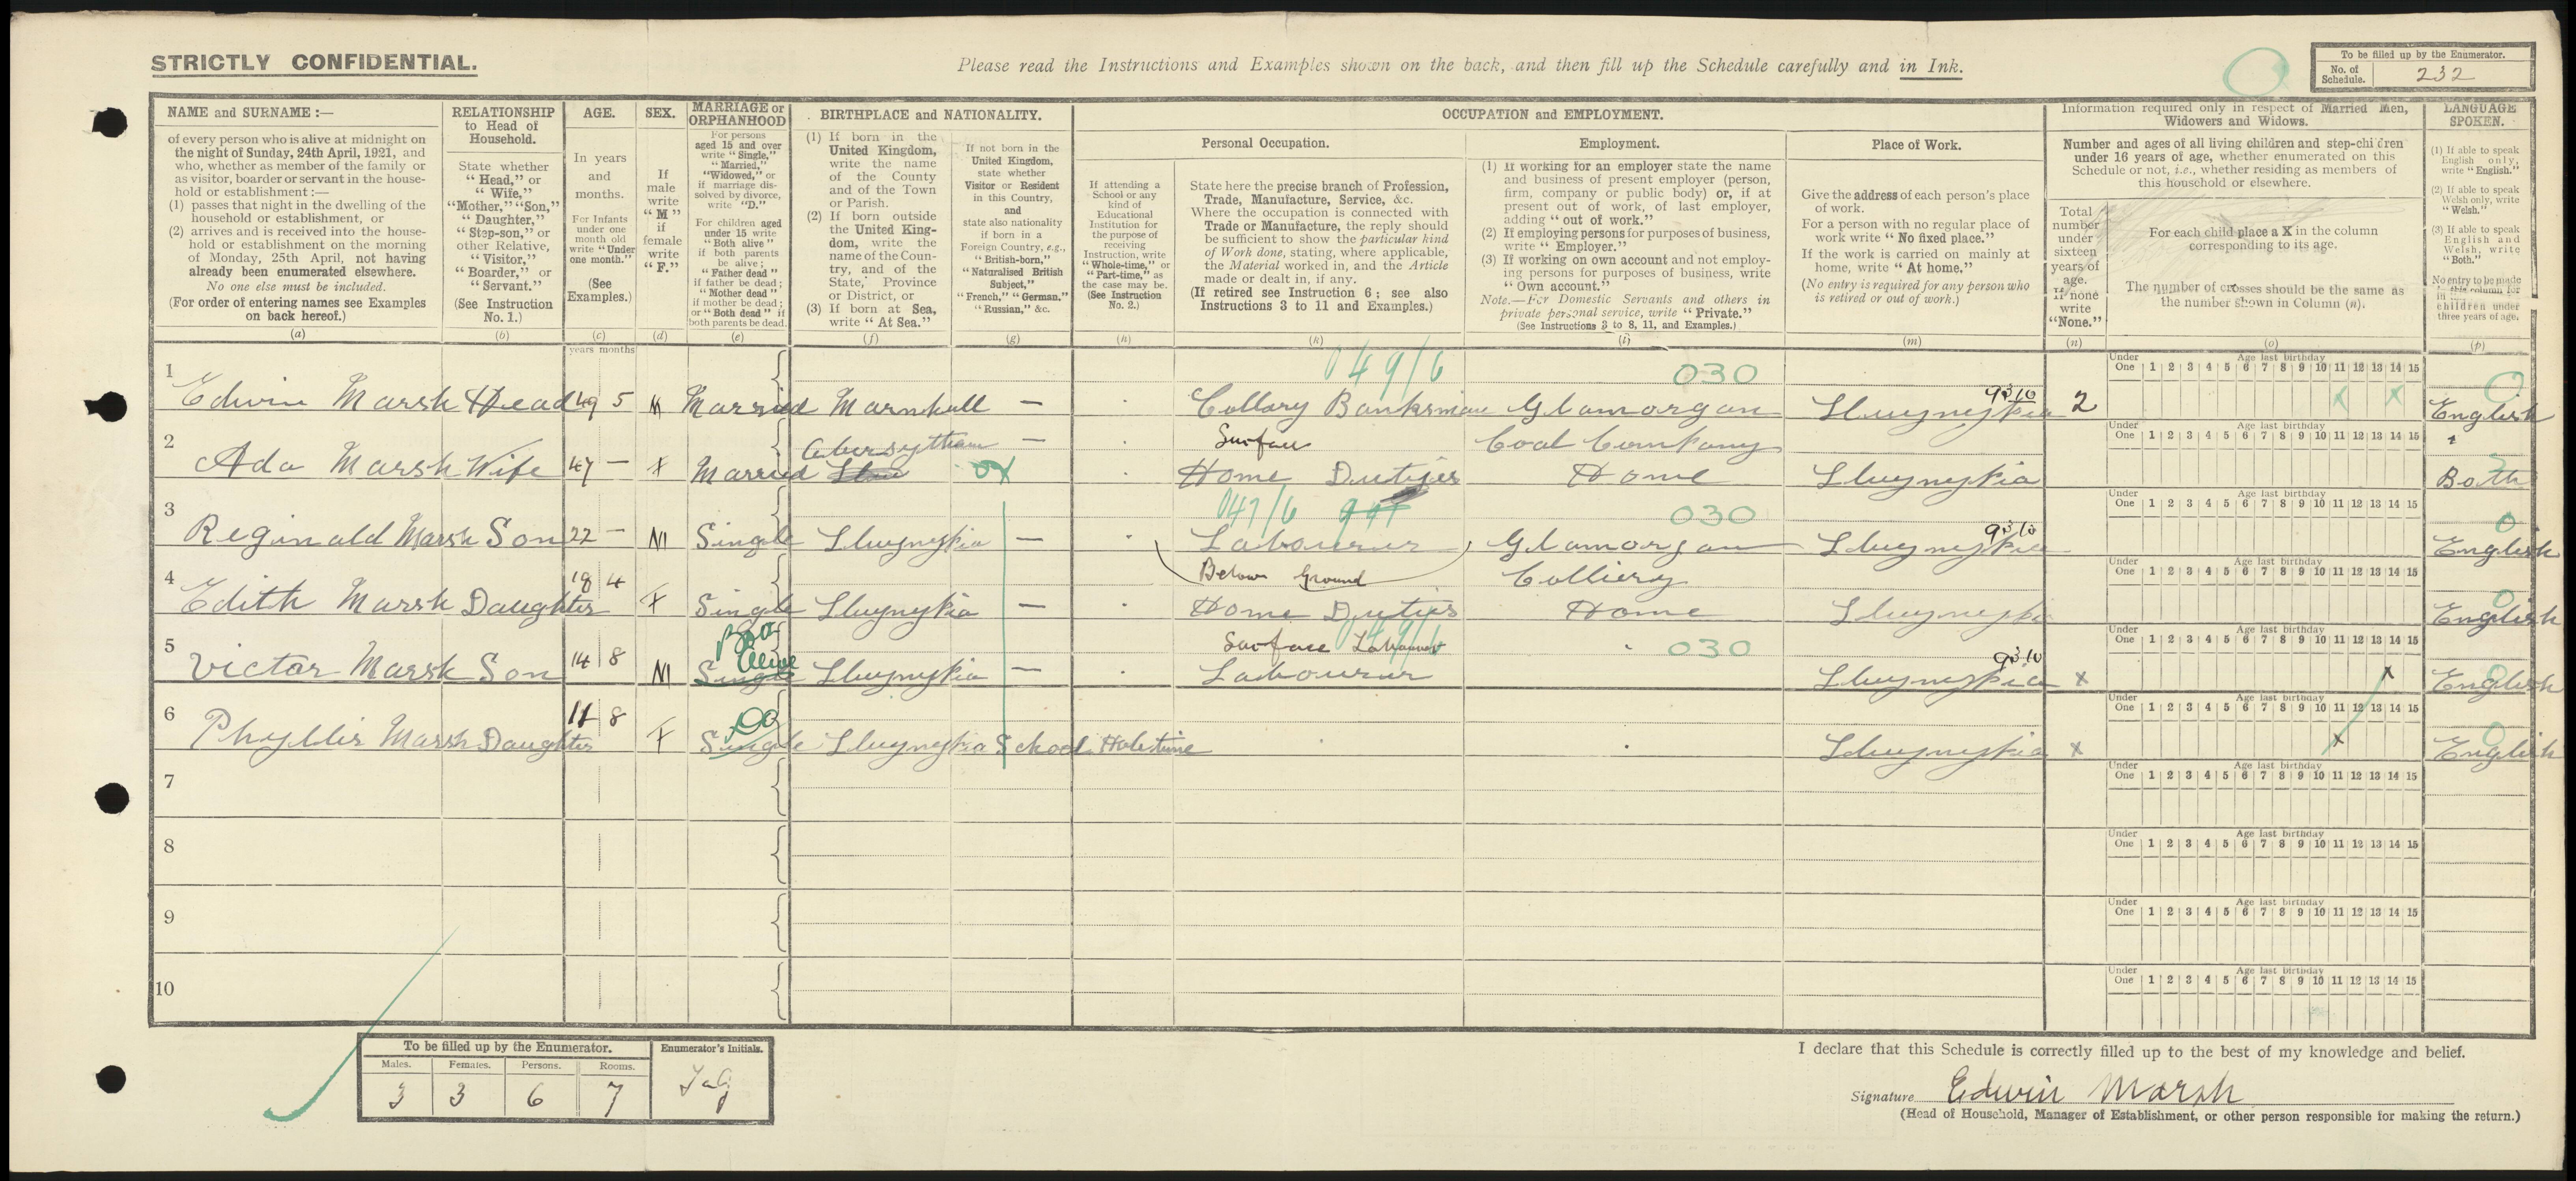 STRICTLY CONFIDENTIAL.
Please read the Instructions and Examples shown on the back, and then fill up the Schedule carefully and in Ink.
To be filled up by the Enumerator.
No. of Schedule. 232
NAME and SURNAME :—
of every person who is alive at midnight on
the night of Sunday, 24th April, 1921, and
who, whether as member of the family or
as visitor, boarder or servant in the house-
hold or establishment :—
(1) passes that night in the dwelling of the
household or establishment, or
(2) arrives and is received into the house-
hold or establishment on the morning
of Monday, 25th April, not having
already been enumerated elsewhere.
No one else must be included.
(For order of entering names see Examples
on back hereof.)
(a)
RELATIONSHIP
to Head of
Household.
State whether
"Head," or
"Wife,"
"Mother," "Son,"
"Daughter,"
"Step-son," or
other Relative,
"Visitor,"
"Boarder," or
"Servant."
(See Instruction
No. 1.)
(b)
AGE.
In years
and
months.
For Infants
under one
month old
write "Under
one month."
(See
Examples.)
(c)
SEX.
If
male
write
"M"
if
female
write
"F."
(d)
MARRIAGE or
ORPHANHOOD
For persons
aged 15 and over
write "Single,"
"Married,"
"Widowed," or
if marriage dis-
solved by divorce,
write "D."
For children aged
under 15 write
"Both alive"
if both parents
be alive;
"Father dead"
if father be dead;
"Mother dead"
if mother be dead;
or "Both dead" if
both parents be dead.
(e)
BIRTHPLACE and NATIONALITY.
(1) If born in the
United Kingdom,
write the name
of the County
and of the Town
or Parish.
(2) If born outside
the United King-
dom, write the
name of the Coun-
try, and of the
State, Province
or District, or
(3) If born at Sea,
write "At Sea."
(f)
If not born in the
United Kingdom,
state whether
Visitor or Resident
in this Country,
and
state also nationality
if born in a
Foreign Country, e.g.,
"British-born,"
"Naturalised British
Subject,"
"French," "German,"
"Russian," &c.
(g)
OCCUPATION and EMPLOYMENT.
If attending a
School or any
kind of
Educational
Institution for
the purpose of
receiving
Instruction, write
"Whole-time," or
"Part-time," as
the case may be.
(See Instruction
No. 2.)
(h)
Personal Occupation.
State here the precise branch of Profession,
Trade, Manufacture, Service, &c.
Where the occupation is connected with
Trade or Manufacture, the reply should
be sufficient to show the particular kind
of Work done, stating, where applicable,
the Material worked in, and the Article
made or dealt in, if any.
(If retired see Instruction 6; see also
Instructions 3 to 11 and Examples.)
(k)
Employment.
(1) If working for an employer state the name
and business of present employer (person,
firm, company or public body) or, if at
present out of work, of last employer,
adding "out of work."
(2) If employing persons for purposes of business,
write "Employer."
(3) If working on own account and not employ-
ing persons for purposes of business, write
"Own account."
Note.—For Domestic Servants and others in
private personal service, write "Private."
(See Instructions 3 to 8, 11, and Examples.)
(l)
Place of Work.
Give the address of each person's place
of work.
For a person with no regular place of
work write "No fixed place."
If the work is carried on mainly at
home, write "At home,"
(No entry is required for any person who
is retired or out of work.)
(m)
Information required only in respect of Married Men,
Widowers and Widows.
Number and ages of all living children and step-children
under 16 years of age, whether enumerated on this
Schedule or not, i.e., whether residing as members of
this household or elsewhere.
Total
number
under
sixteen
years of
age.
If none
write
"None."
(n)
For each child place a X in the column
corresponding to its age.
The number of crosses should be the same as
the number shown in Column (n).
(o)
LANGUAGE
SPOKEN.
(1) If able to speak
English only,
write "English."
(2) If able to speak
Welsh only, write
"Welsh."
(3) If able to speak
English and
Welsh, write
"Both."
No entry to be made
in this column for
children under
three years of age.
(p)
years months
Under One 1 2 3 4 5 6 7 8 9 10 11 12 13 14 15
Age last birthday
049/6 030
1 Edwin Marsh Head 49 5 M Married Marnhull — Collary Banksman Glamorgan Llwynypia 9310 2 X X English
Surface Coal Company
Under One 1 2 3 4 5 6 7 8 9 10 11 12 13 14 15
Age last birthday
2 Ada Marsh Wife 47 — F Married — Home Duties Home Llwynypia Both
Under One 1 2 3 4 5 6 7 8 9 10 11 12 13 14 15
Age last birthday
030
3 Reginald Marsh Son 22 — M Single Llwynypia — Labourer Glamorgan Llwynypia 9310 English
Below Ground Colliery
Under One 1 2 3 4 5 6 7 8 9 10 11 12 13 14 15
Age last birthday
4 Edith Marsh Daughter 18 4 F Single Llwynypia — Home Duties Home Llwynypia English
Under One 1 2 3 4 5 6 7 8 9 10 11 12 13 14 15
Age last birthday
Both Alive Surface Labourer 049/6 030
5 Victor Marsh Son 14 8 M Single Llwynypia — Labourer Llwynypia 9310 X X English
Under One 1 2 3 4 5 6 7 8 9 10 11 12 13 14 15
Age last birthday
DO
6 Phyllis Marsh Daughter 11 8 F Single Llwynypia School Holetime Llwynypia X X English
7
Under One 1 2 3 4 5 6 7 8 9 10 11 12 13 14 15
Age last birthday
8
Under One 1 2 3 4 5 6 7 8 9 10 11 12 13 14 15
Age last birthday
9
Under One 1 2 3 4 5 6 7 8 9 10 11 12 13 14 15
Age last birthday
10
Under One 1 2 3 4 5 6 7 8 9 10 11 12 13 14 15
Age last birthday
To be filled up by the Enumerator.
Males. Females. Persons. Rooms.
3 3 6 7
Enumerator's Initials.
I declare that this Schedule is correctly filled up to the best of my knowledge and belief.
Signature Edwin Marsh
(Head of Household, Manager of Establishment, or other person responsible for making the return.)